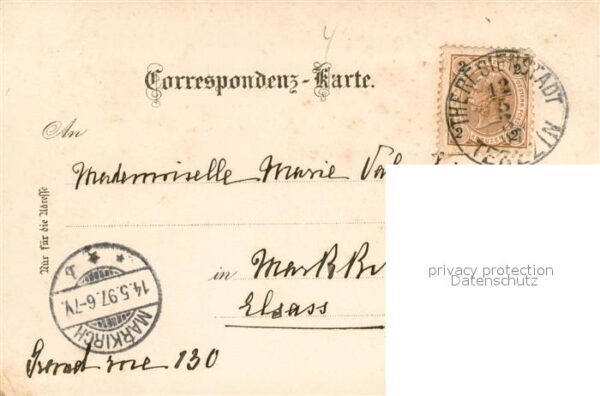 4
Correspondenz-Karte.
THERESIENSTADT
12 5
TEREZIN
An
Mademoiselle Marie
Nur für die Adresse
privacy protection
Datenschutz
in Markki
Elsass
MARKIRCH
14.5.97.6-7V.
b
Grand rue 130